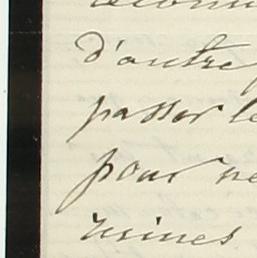 d'autre
passer le
pour ne
mines